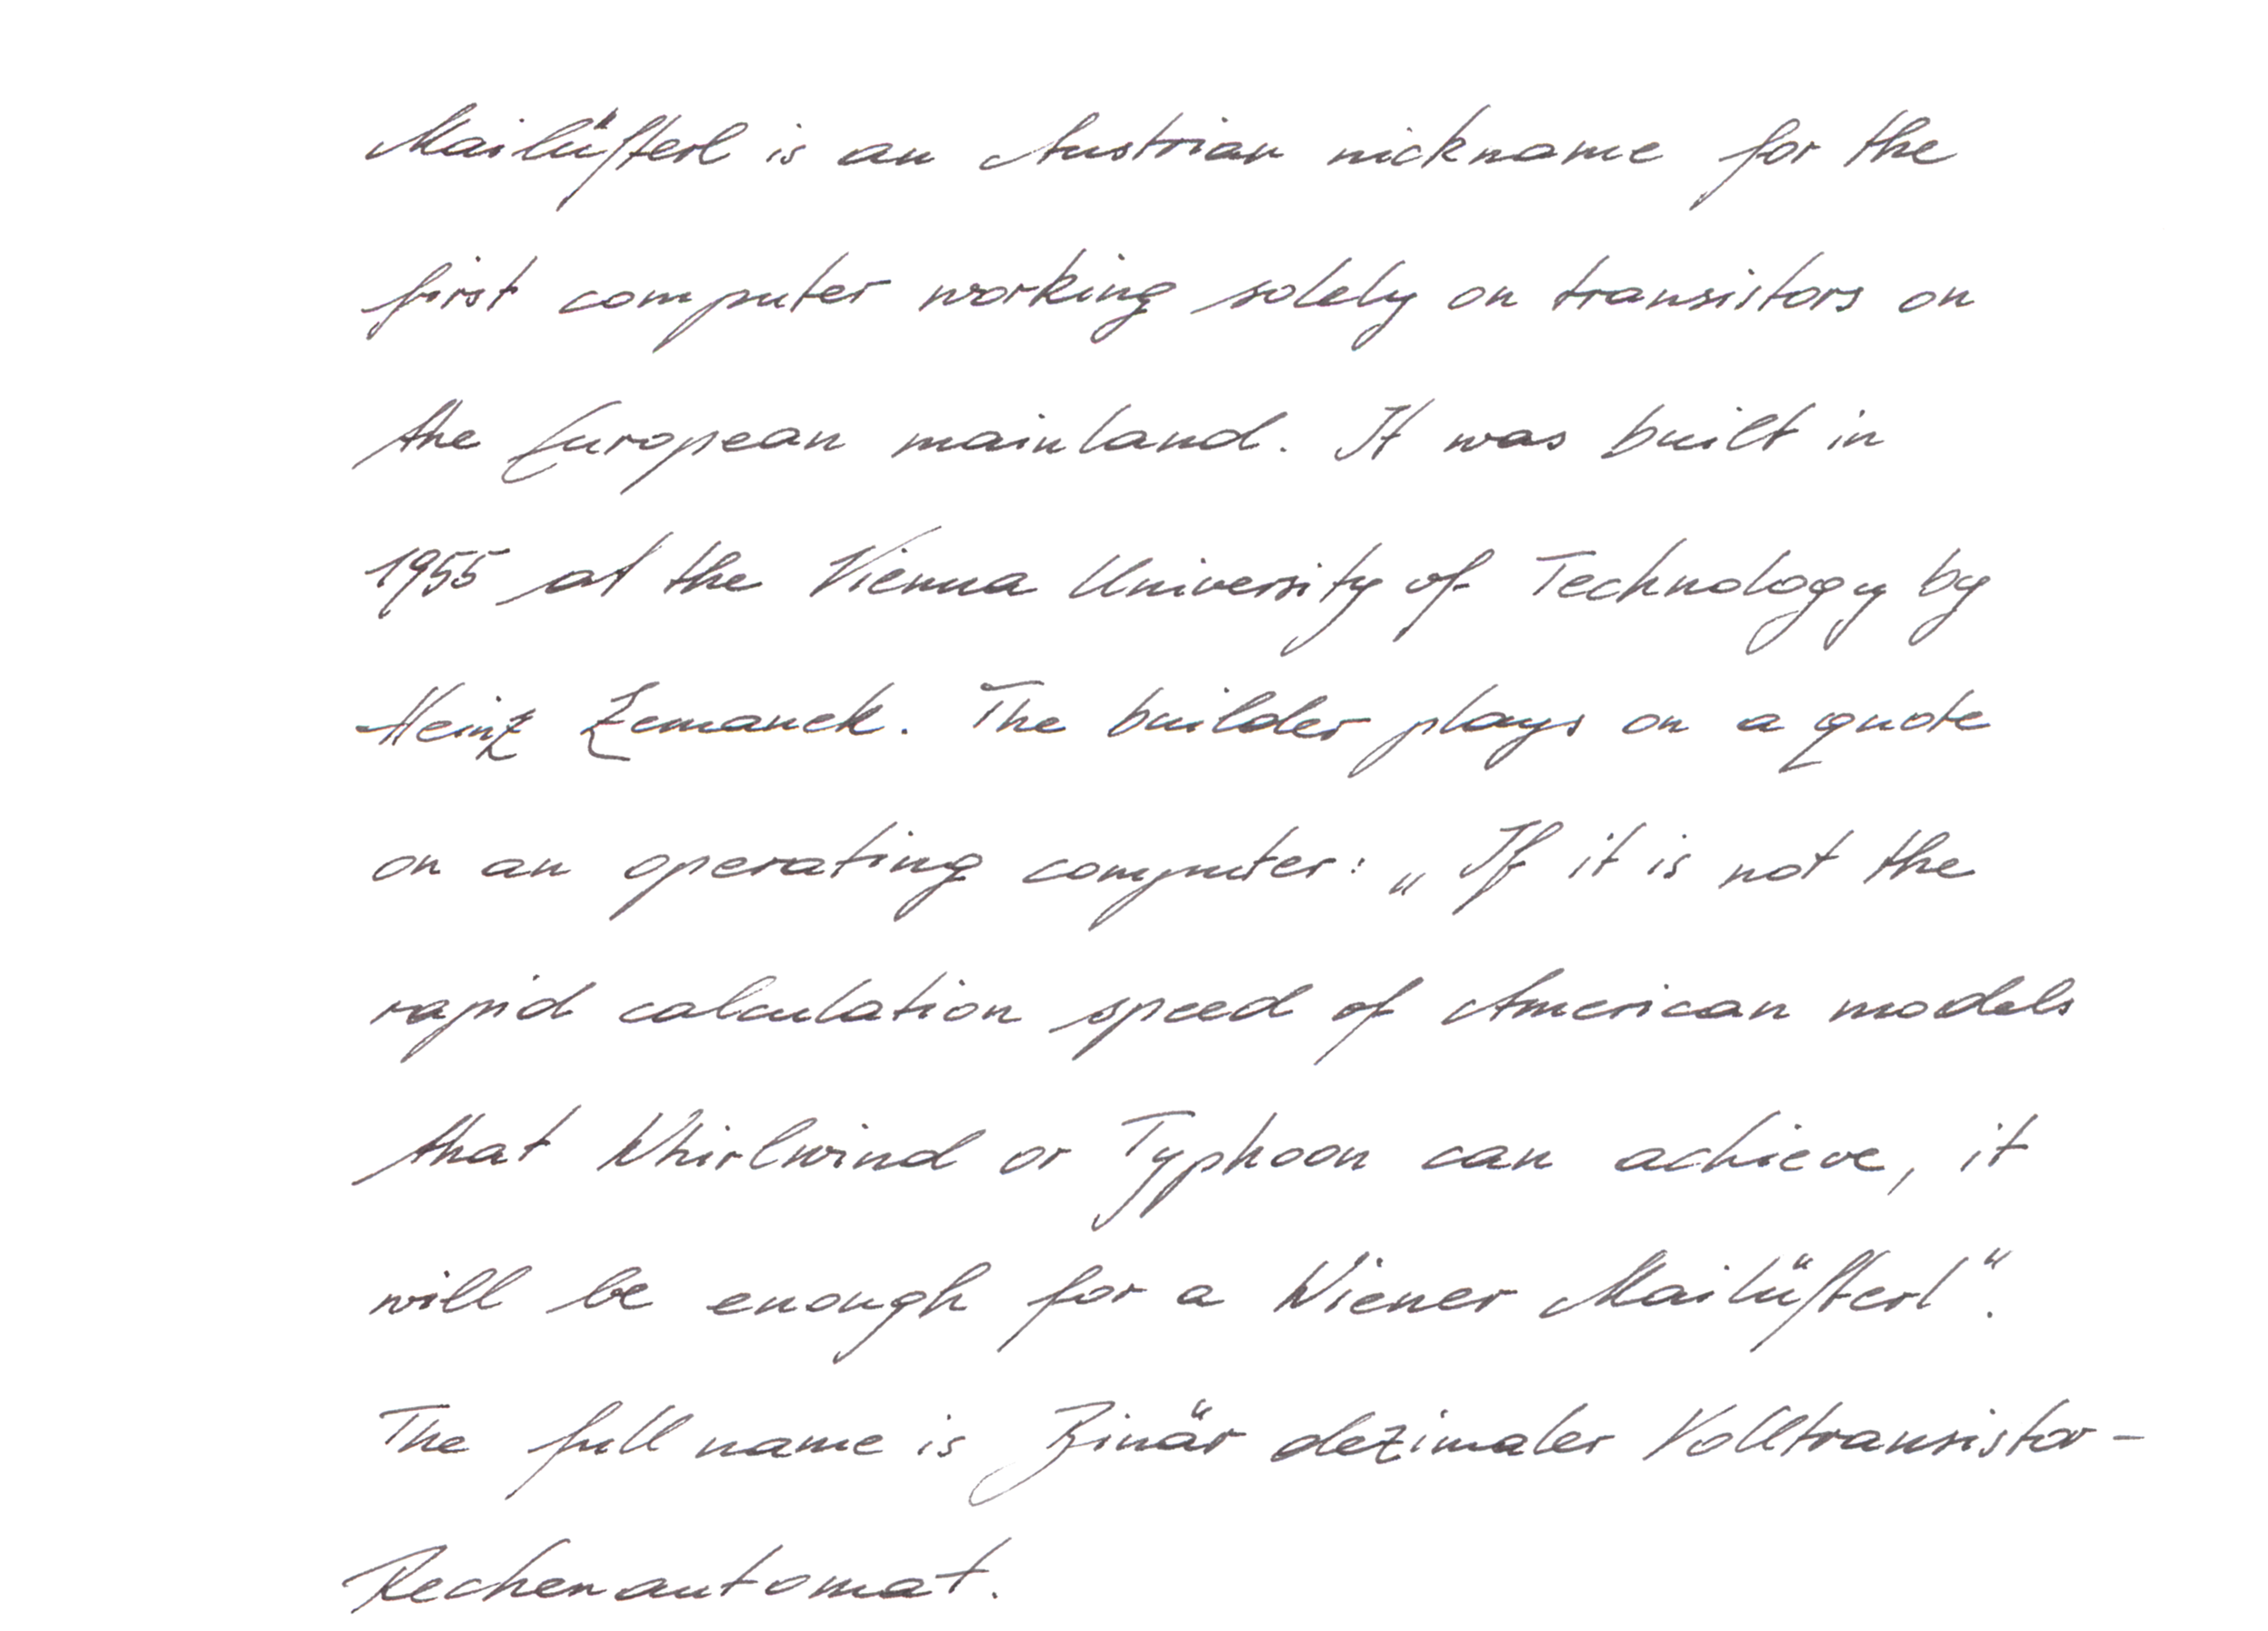 Mailüfterl is an Austrian nickname for the
first computer working solely on transistors on
the European mainland. It was built in
1955 at the Vienna University of Technology by
Heinz Zemanek. The builder plays on a quote
on an operating computer: „If it is not the
rapid calculation speed of American models
that Whirlwind or Typhoon can achieve, it
will be enough for a Wiener Mailüfterl“.
The full name is Binär dezimaler Volltransistor-
Rechenautomat.